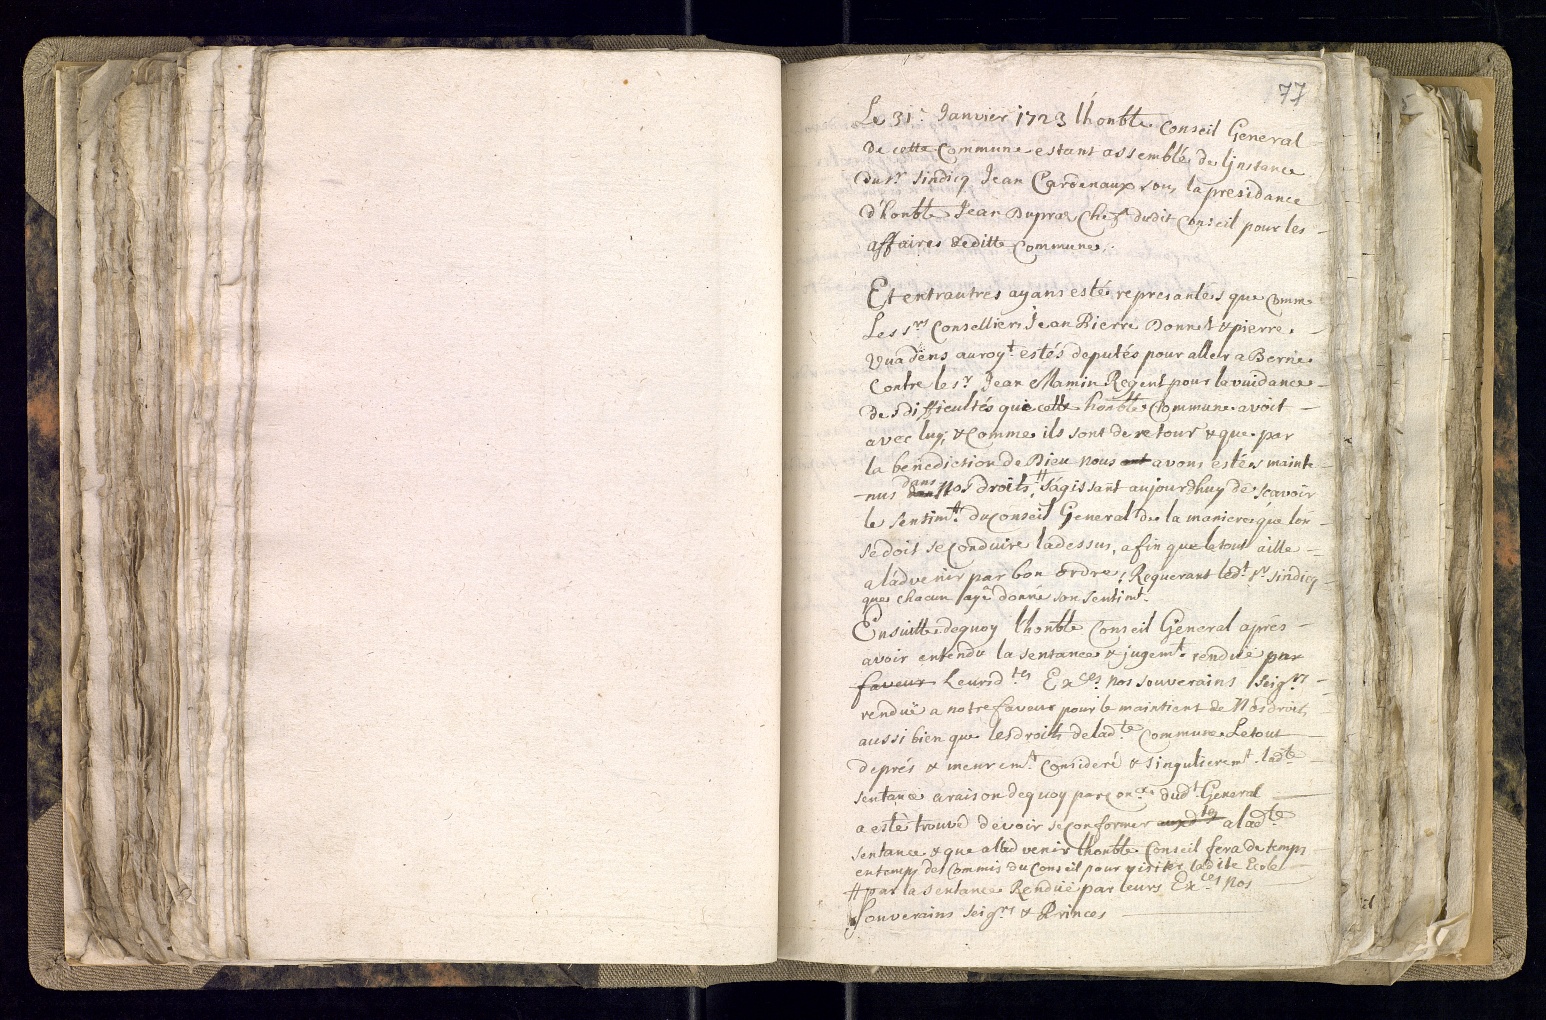 77
Le 31.e Janvier 1723 l'honble Conseil General
de cette Commune estant assemblé de l'jnstance
du sr. sindicq Jean Cardenaux sous la presidance
d'honble Jean Dupraz Chef dudit Conseil pour les
affaires deditte Commune.
Et entrautres ayans esté represantés que comme
Les srs Conselliers Jean Pierre Donnet & pierre
Vuadens auroyt estés deputés pour aller a Berne
Contre le sr. Jean Mamin Regent pour la vuidance
des difficultés que cette honble Commune avoit
avec luy, & comme ils sont de retour & que par
la benediction de Dieu nous ont avons estés mainte
nus dans dans Nos droits, # s'agissant aujourdhuy de scavoir
le sentimt. du Conseil General de la maniere que lon
se doit se Conduire ladessus, afin que le tout aille
a ladvenir par bon ordre; Requerant ledt. sr. sindicq
que chacun aye donné son sentimt.
Ensuitte dequoy lhonble Conseil General aprés
avoir entendu la sentance & jugemt. renduë par
faveur Leursdtes Exces. nos souverains seigrs
renduë a notre faveur pour le maintient de Nos droits
aussi bien que les droits de ladte Commune Le tout
deprés & meuremt. Consideré & singulieremt. ladte
sentance a raison dequoy par Dudt General
a esté trouvé devoir se conformer auxdtes a ladte
sentance & que alad venir lhonble Conseil fera de temps
entemps des Commis du Conseil pour visiter ladite Ecole
# par la sentance Renduë par leurs Exces nos
souverains seigrs & Princes